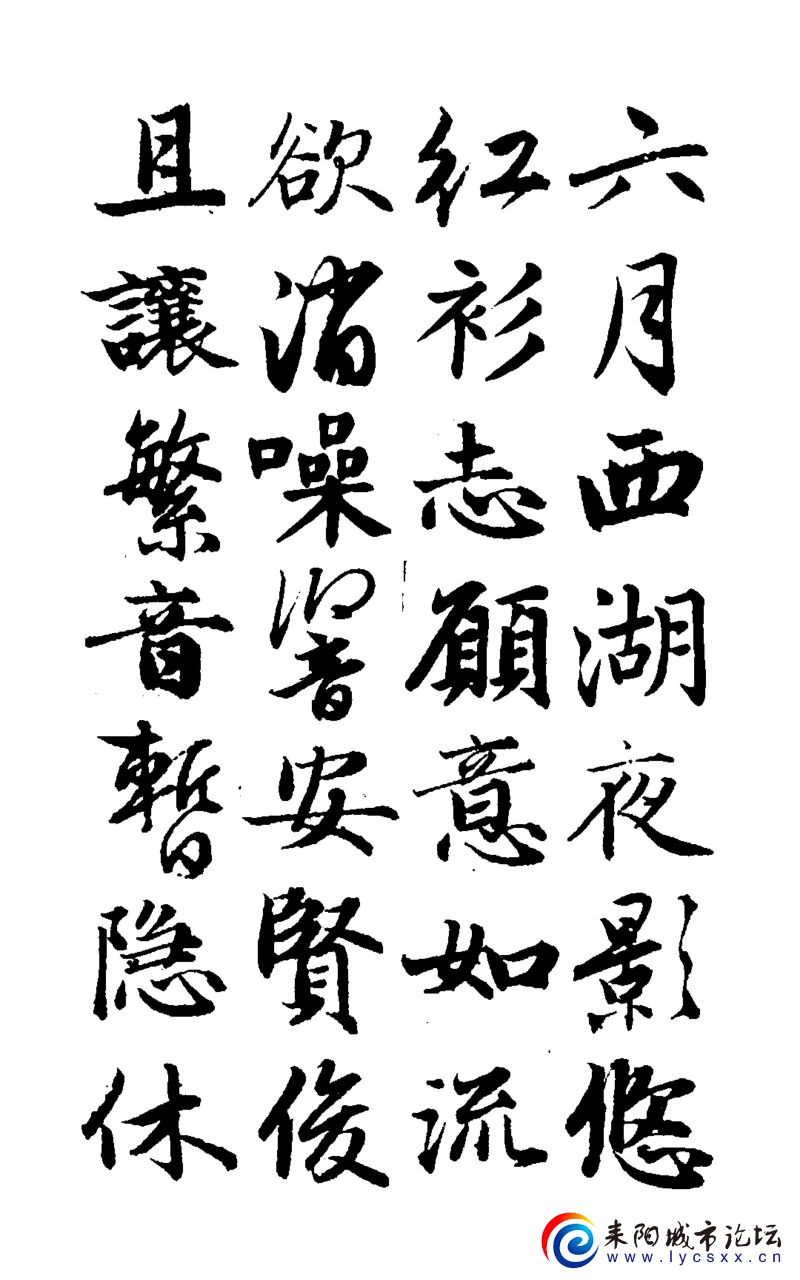 六月西湖夜影悠
红衫志願意如流
欲消噪響安賢俊
且讓繁音暫隐休
耒阳城市论坛
www.lycsxx.cn